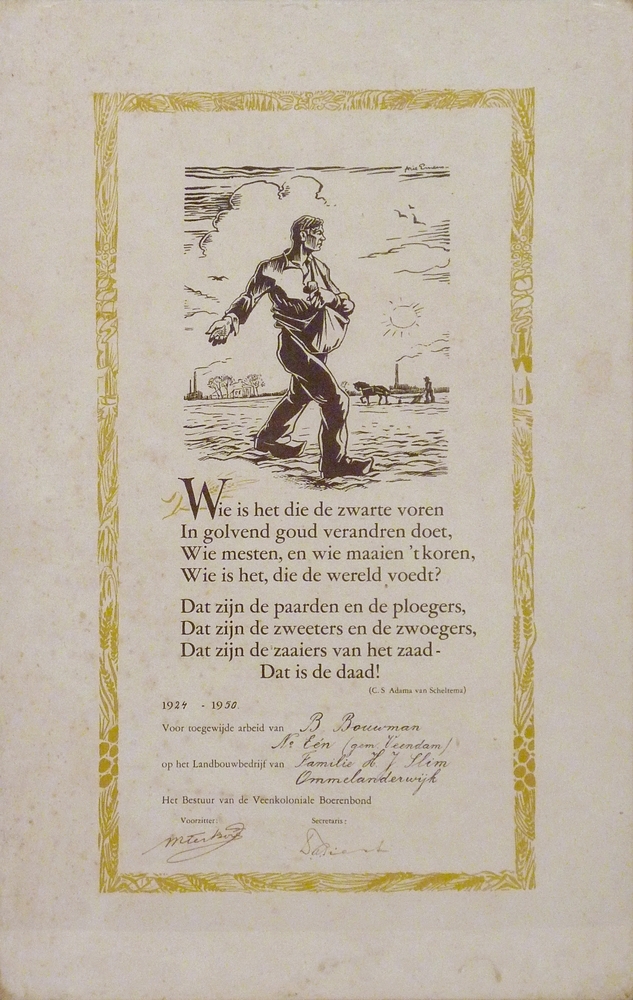 Wie is het die de zwarte voren
In golvend goud verandren doet,
Wie mesten, en wie maaien 't koren,
Wie is het, die de wereld voedt?
Dat zijn de paarden en de ploegers,
Dat zijn de zweeters en de zwoegers,
Dat zijn de zaaiers van het zaad-
Dat is de daad!
(C. S Adama van Scheltema)
1924 - 1950.
Voor toegewijde arbeid van B. Bouwman
No Eén (gem. Veendam)
op het Landbouwbedrijf van Familie H J Slim
Ommelanderwijk
Het Bestuur van de Veenkoloniale Boerenbond
Voorzitter: Secretaris: